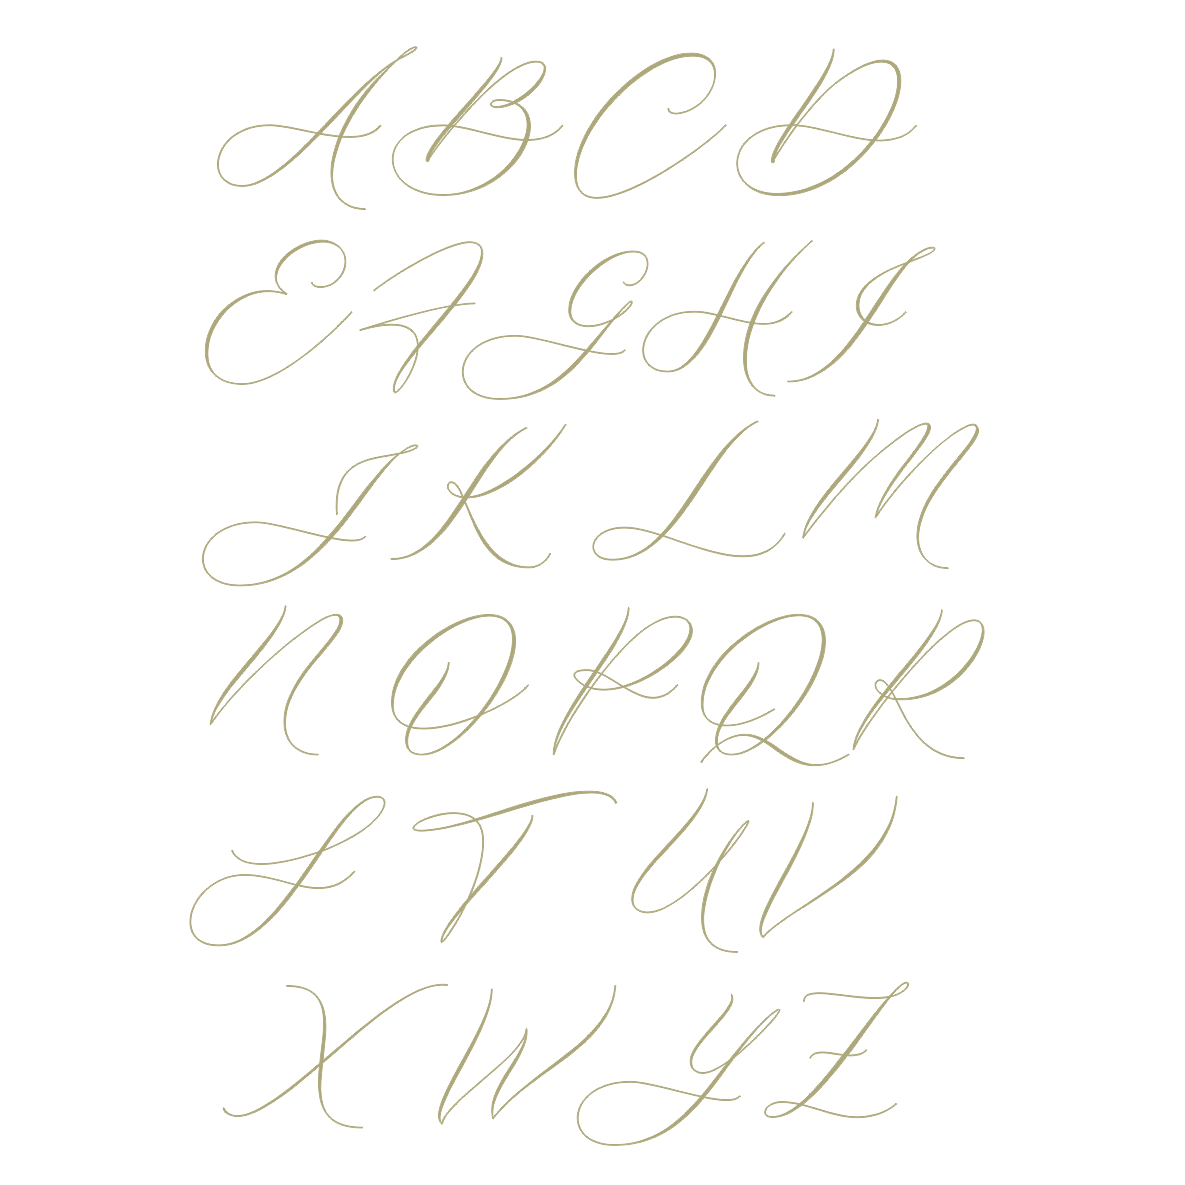 A B C D
E F G H I
J K L M
N O P Q R
S T U V
X W Y Z